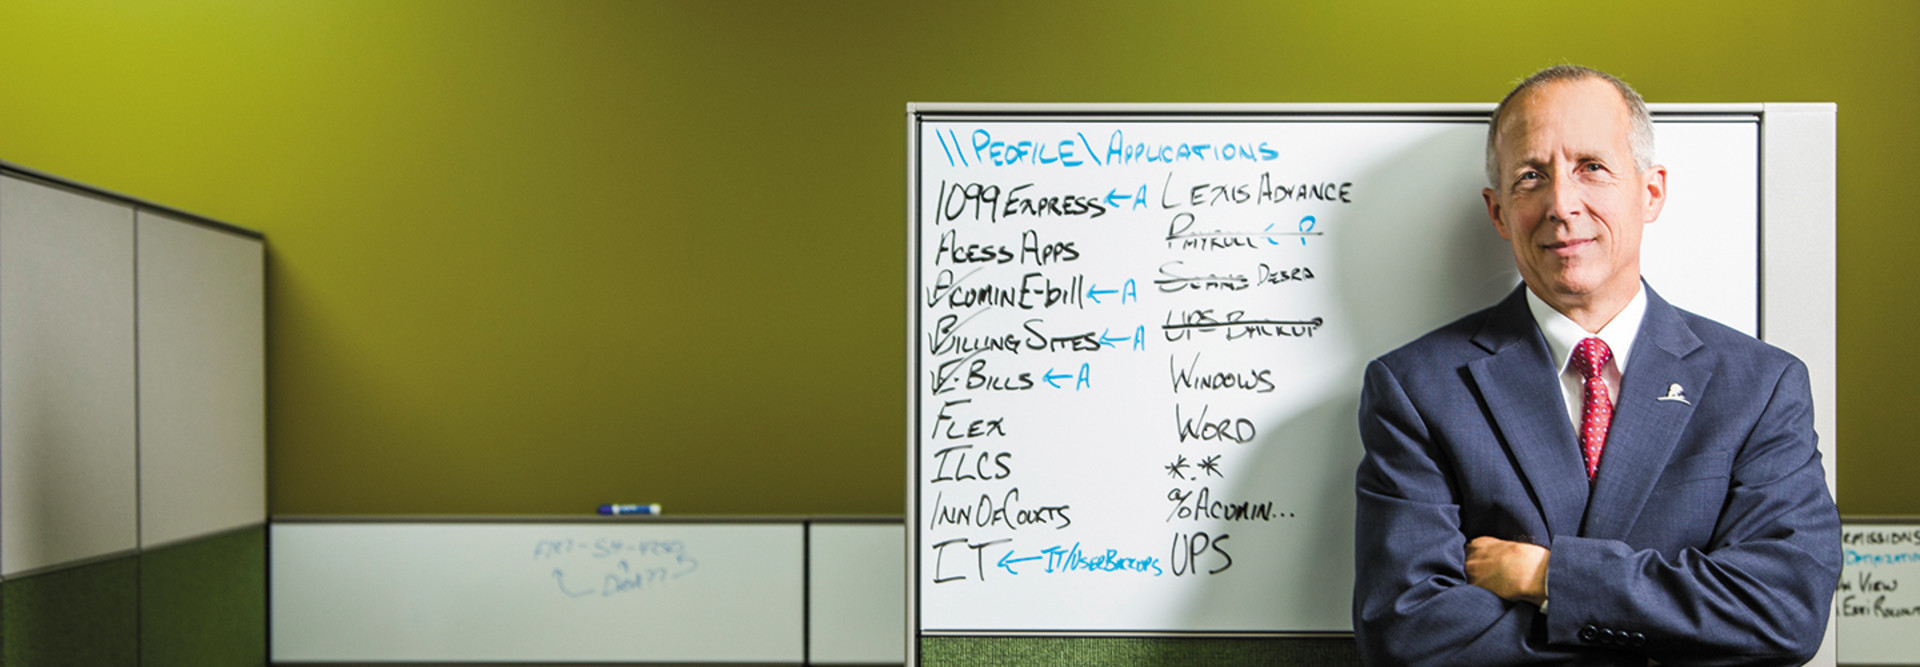 \\PEOFILE\APPLICATIONS
1099 EXPRESS ← A
ACESS APPS
ACUMIN E-bill ← A
BILLING SITES ← A
E-BILLS ← A
FLEX
ILCS
INN OF COURTS
IT ← IT/USER BACKUPS
LEXIS ADVANCE
PAYROLL ← P
SCANS DEBRA
UPS BACKUP
WINDOWS
WORD
*.*
%ACUMIN...
UPS
RMISSIONS
VIEW